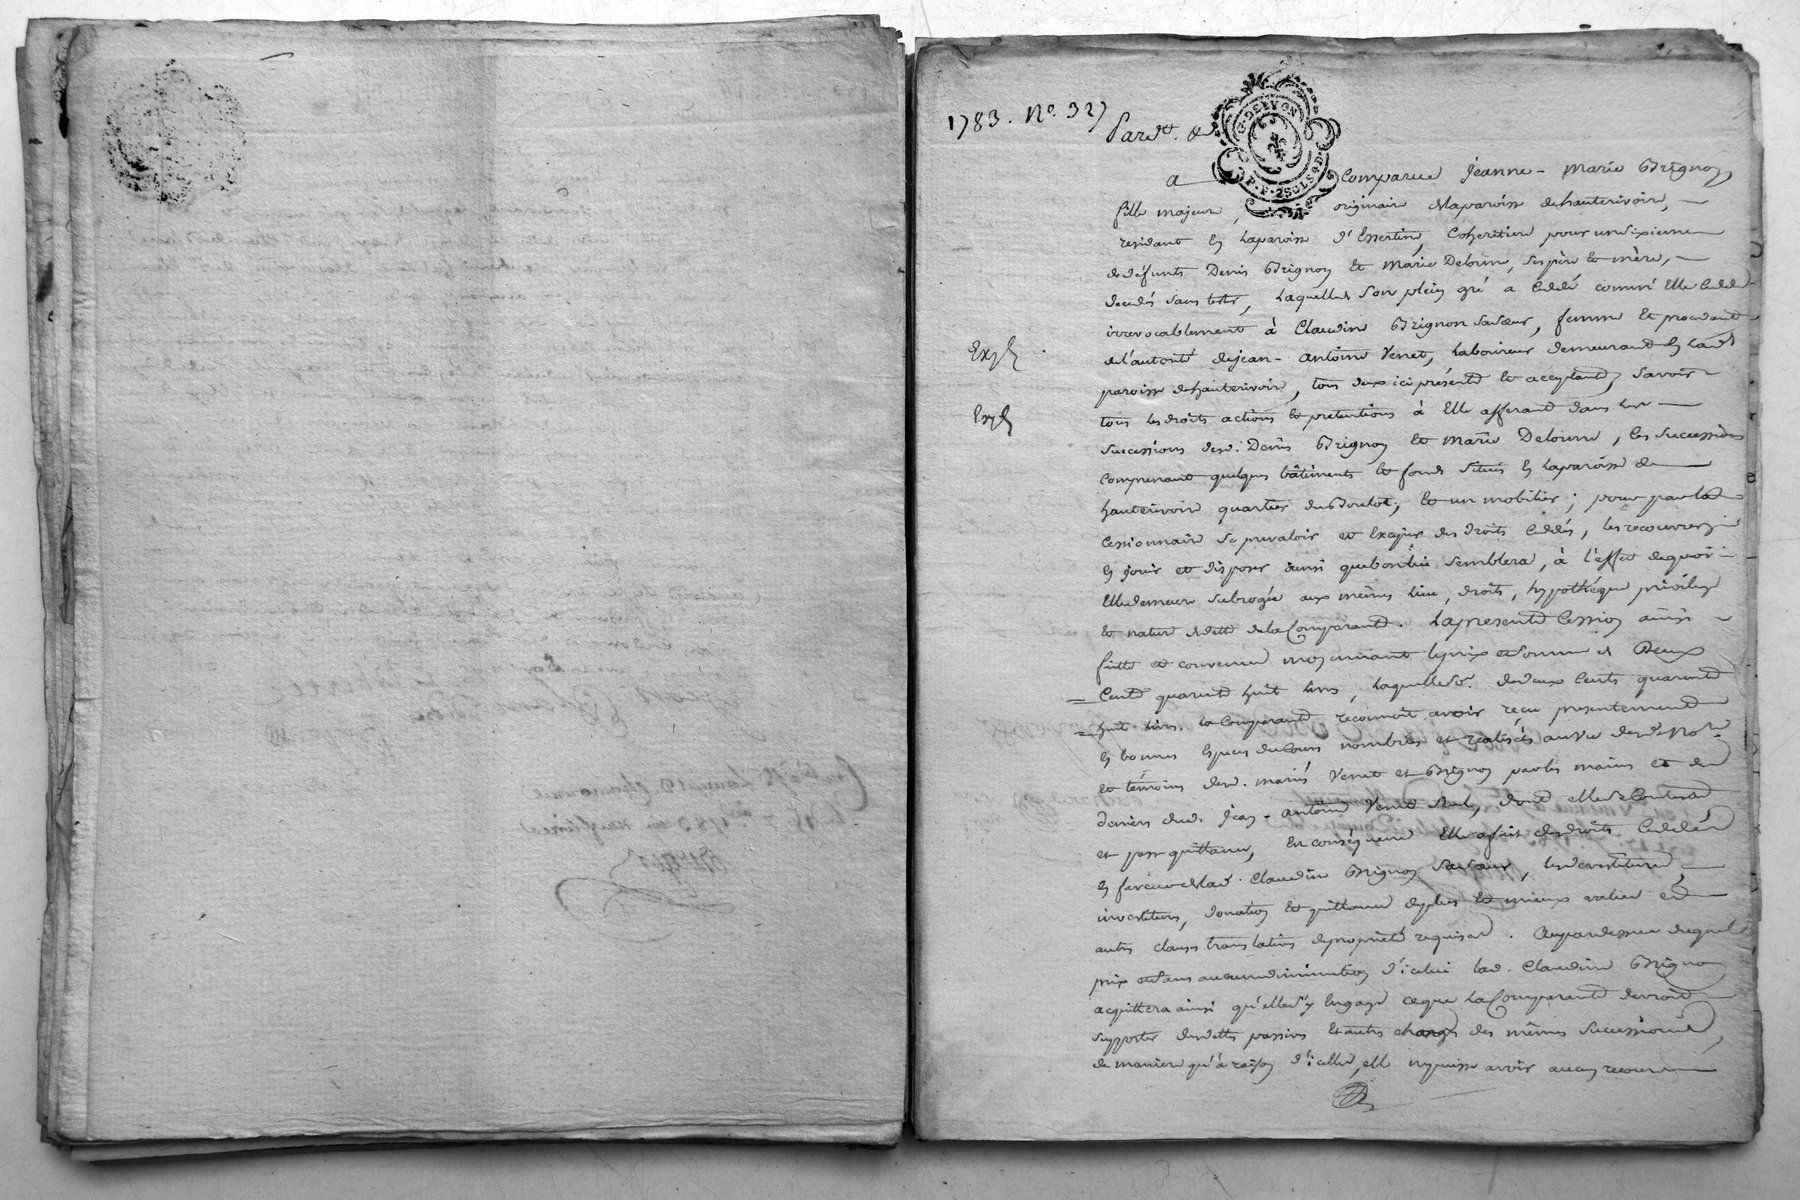 1783. No. 327
Pardt. &
G. DE LYON
P. P. 2 SOLS 4 D.
a Comparue Jeanne-Marie Brignon
fille majeure, originaire de la paroisse de hauterivoire,
residant en la paroisse d'Essertine, Coheritiere pour un sixieme
de défunts Denis Brignon et Marie Delorme, ses père et mère,
decedés sans tester, laquelle de son plein gré a Cedé comme Elle Cede
irrevocablement à Claudine Brignon sa sœur, femme et procedant
de l'autorité de jean-antoine Venet, laboureur demeurant en lad.
paroisse de hauterivoire, tous deux ici présents et acceptants, Savoir
tous les droits actions et pretentions à Elle afferant dans les
successions desd. Denis Brignon et Marie Delorme, les successions
comprenant quelques bâtiments et fonds situés en la paroisse de
hauterivoire quartier du Boulot, et un mobilier; pour par la
Cessionnaire se prevaloir et Exiger des droits Cedés, les recouvrer,
en jouir et disposer ainsi que bon lui semblera, à l'effet de quoi
Elle demeure subrogée aux mêmes lieu, droits, hypothéque privilege
et nature de dette de la Comparante. La presente Cession ainsi
faite et convenue moyennant le prix et somme de Deux
Cents quarante huit livres, laquelle de. de deux Cents quarante
huit livres. la Comparante reconnoit avoir reçu presentement
en bonnes Especes du Cours nombrées et realisées au vu desd. No.res
et témoins desd. mariés Venet et Brignon par les mains et des
deniers dud. Jean-antoine Venet seul, dont elle se Contente
et passe quittance, En conséquence Elle a fait des droits Cedés
en faveur de lad. Claudine Brignon sa sœur, les devestiture,
investiture, donation et quittance de plus et mieux value et
autres clauses translatives de propriété requises. Aupardessus duquel
prix et sans aucune diminution d'icelui lad. Claudine Brignon
acquittera ainsi qu'elle s'y Engage ce que la Comparante devroit
supporter des dettes passives et autres charges des mêmes successions,
de maniere qu'à raison d'icelles, elle n'y puisse avoir aucun recours
Expé
Expé